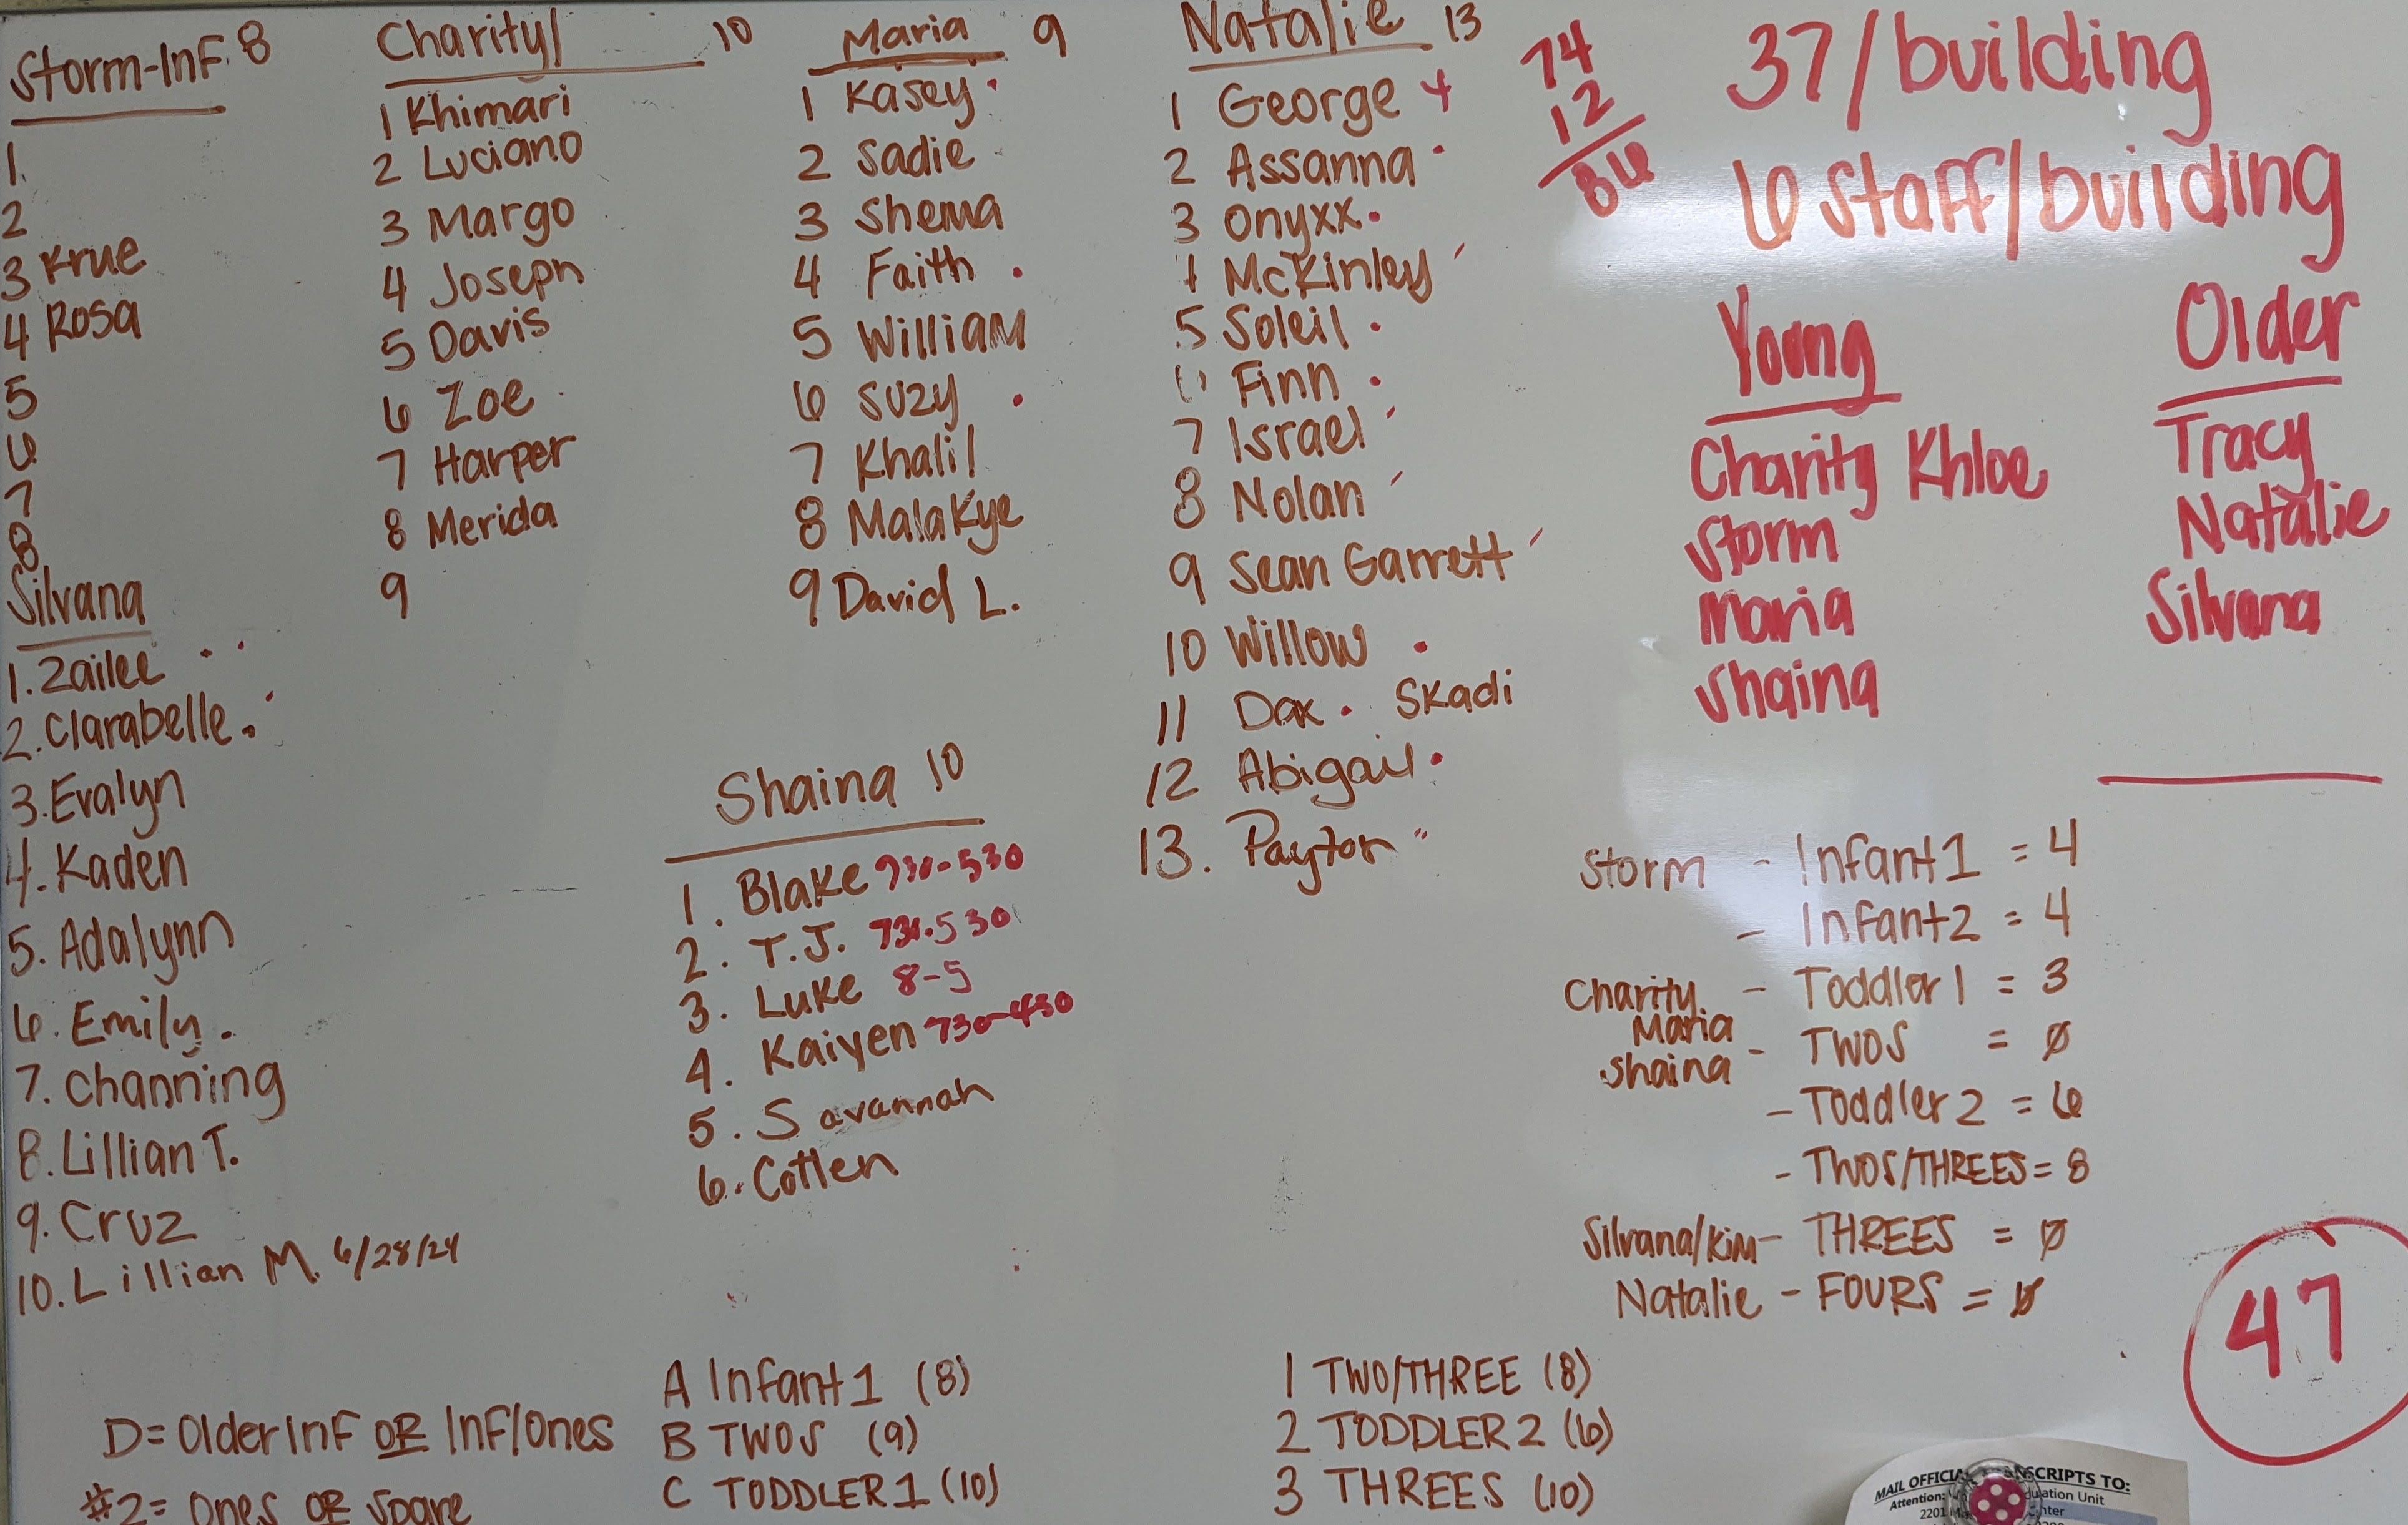 Storm-Inf. 8
1.
2
3 Krue
4 Rosa
5
6
7
8
Silvana
1. Zailee
2. Clarabelle.
3. Evalyn
4. Kaden
5. Adalynn
6. Emily.
7. Channing
8. Lillian T.
9. Cruz
10. Lillian M. 6/28/24
Charity 10
1 Khimari
2 Luciano
3 Margo
4 Joseph
5 Davis
6 Zoe
7 Harper
8 Merida
9
Maria 9
1 Kasey
2 Sadie
3 Shema
4 Faith
5 William
6 Suzy
7 Khalil
8 Malakye
9 David L.
Shaina 10
1. Blake 730-530
2. T.J. 730-530
3. Luke 8-5
4. Kaiyen 730-430
5. Savannah
6. Cotten
Natalie 13
1 George
2 Assanna
3 Onyxx
4 McKinley
5 Soleil
6 Finn
7 Israel
8 Nolan
9 Sean Garrett
10 Willow
11 Dax Skadi
12 Abigail
13. Payton
74
12
86
37/building
6 Staff/building
Young
Charity Khloe
Storm
Maria
Shaina
Older
Tracy
Natalie
Silvana
Storm - Infant 1 = 4
- Infant 2 = 4
Charity - Toddler 1 = 3
Maria
Shaina - TWOS = Ø
- Toddler 2 = 6
- TWOS/THREES = 8
Silvana/Kim - THREES = Ø
Natalie - FOURS = Ø
47
D = Older Inf OR Inf/Ones
#2 = Ones OR Spare
A Infant 1 (8)
B TWOS (9)
C TODDLER 1 (10)
1 TWO/THREE (8)
2 TODDLER 2 (6)
3 THREES (10)
MAIL OFFICIAL TRANSCRIPTS TO:
Attention:
Unit
2201